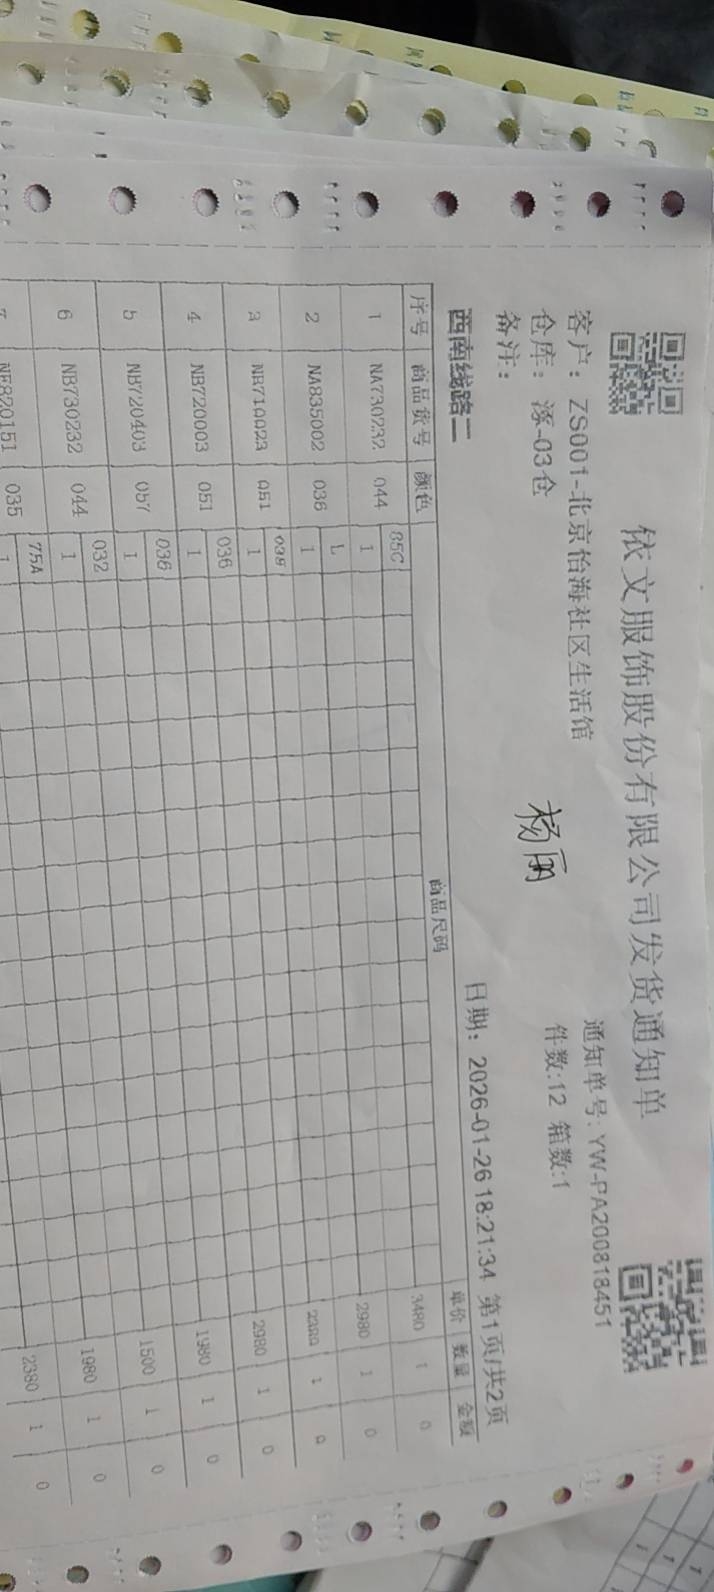 依文服饰股份有限公司发货通知单
客户：ZS001-北京怡海社区生活馆
通知单号:YW-PA200818451
仓库：涿-03仓
件数:12 箱数:1
备注：
杨丽
西南线路二
日期：2026-01-26 18:21:34 第1页/共2页
序号 商品货号 颜色 商品尺码 单价 数量 金额
85C
1 NA730232 044 1 3480 1 0
L
2 NA835002 036 1 2980 1 0
038
3 NB710023 051 1 2380 1 0
036
4 NB720003 051 1 2980 1 0
036
5 NB720403 057 1 1980 1 0
032
6 NB730232 044 1 1500 1 0
75A
7 NE820151 035 1 1980 1 0
2380 1 0